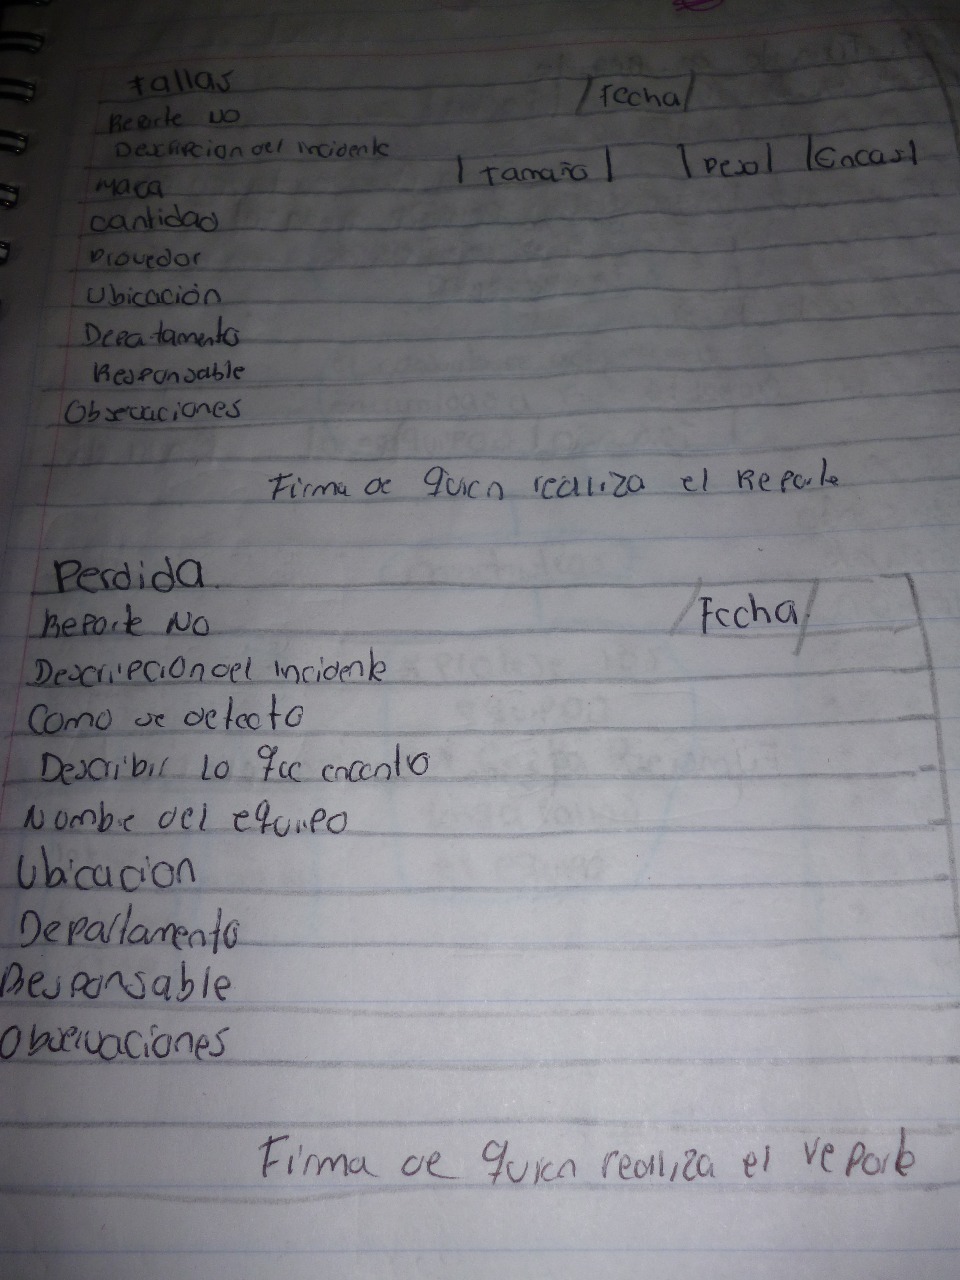 tallas
Reporte No | Fecha |
Descripcion del incidente
Maca | tamaño | | Peso | |
cantidad
Provedor
Ubicación
Depatamento
Responsable
Obsevaciones
Firma de quien realiza el Reporte
Perdida
Reporte No / Fecha /
Descripcion del incidente
Como se detecto
Describir lo que encontro
Nombre del equipo
Ubicacion
Departamento
Responsable
Observaciones
Firma de quien realiza el reporte